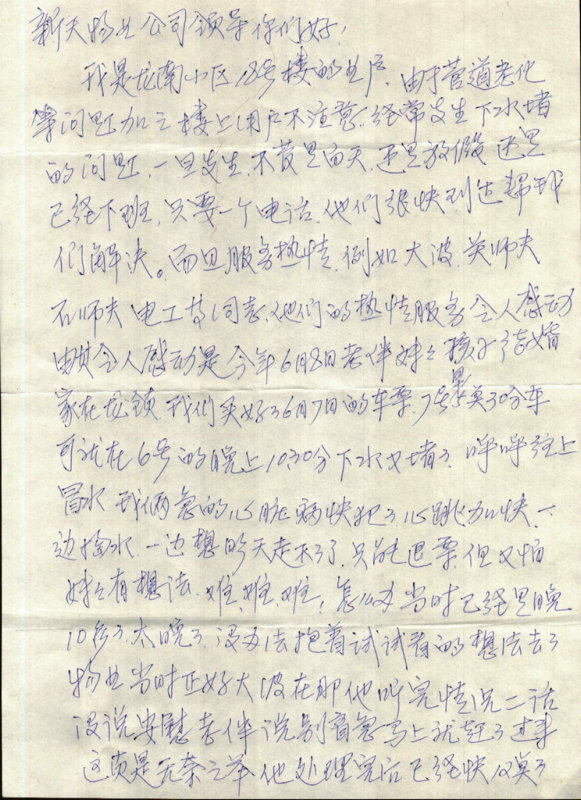 新天物业公司领导你们好,
我是龙南小区18号楼的住户,由于管道老化
等问题加之楼上用户不注意,经常发生下水堵
的问题,一旦发生,不管是雨天,还是放假,还是
已经下班,只要一个电话,他们很快到达帮我
们解决。而且服务热情,例如大波、关师夫
石师夫 电工等同志,他们的热情服务令人感动
由其令人感动是今年6月8日老伴妹妹孩子结婚
家在龙镇 我们买好了6月7日的车票,7号是早30分车
可就在6号的晚上10.30分下水又堵了,哗哗往上
冒水 我俩急的心脏病快犯了心跳加快,一
边掏水,一边想明天走不了了,只能退票,但又怕
妹妹有想法,难、难、难,怎么办 当时已经是晚
10多了,太晚了,没办法抱着试试看的想法去了
物业当时正好大波在那他听完情况二话
没说安慰老伴说别着急马上就赶了过来
这真是无奈之举 他处理完后已经快